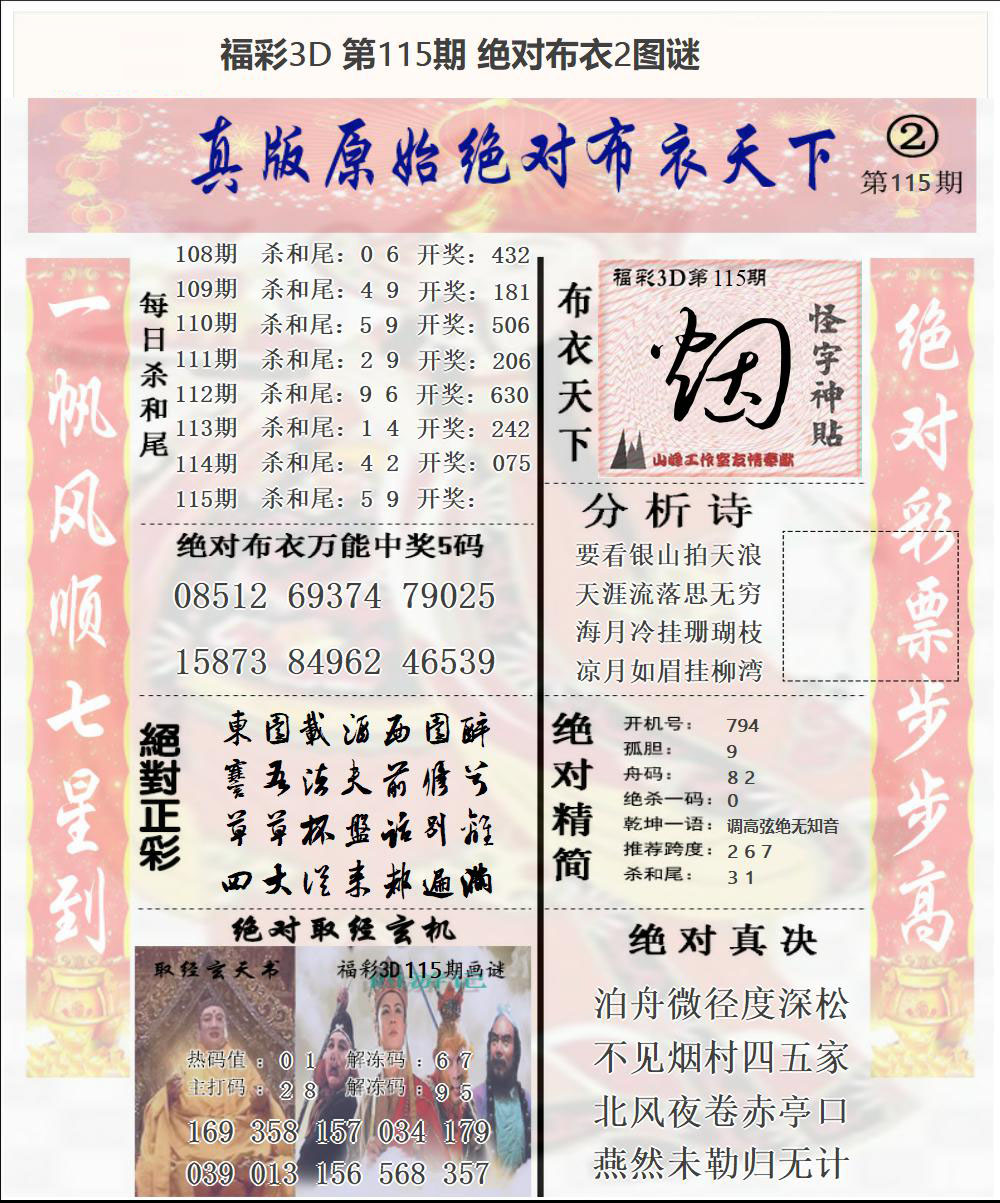 福彩3D 第115期 绝对布衣2图谜
真版原始绝对布衣天下
②
第115期
一帆风顺七星到
绝对彩票步步高
每日杀和尾
108期 杀和尾：0 6 开奖：432
109期 杀和尾：4 9 开奖：181
110期 杀和尾：5 9 开奖：506
111期 杀和尾：2 9 开奖：206
112期 杀和尾：9 6 开奖：630
113期 杀和尾：1 4 开奖：242
114期 杀和尾：4 2 开奖：075
115期 杀和尾：5 9 开奖：
绝对布衣万能中奖5码
08512 69374 79025
15873 84962 46539
絕對正彩
東園載酒西園醉
寒
草草杯盤话别離
四大從来都遍满
绝对取经玄机
取经玄天书
福彩3D115期画谜
热码值：0 1 解冻码：6 7
主打码：2 8 解冻码：9 5
169 358 157 034 179
039 013 156 568 357
布衣天下
福彩3D第115期
烟
怪字神贴
山峰工作室友情奉献
分析诗
要看银山拍天浪
天涯流落思无穷
海月冷挂珊瑚枝
凉月如眉挂柳湾
绝对精简
开机号：794
孤胆：9
舟码：8 2
绝杀一码：0
乾坤一语：调高弦绝无知音
推荐跨度：2 6 7
杀和尾：3 1
绝对真决
泊舟微径度深松
不见烟村四五家
北风夜卷赤亭口
燕然未勒归无计